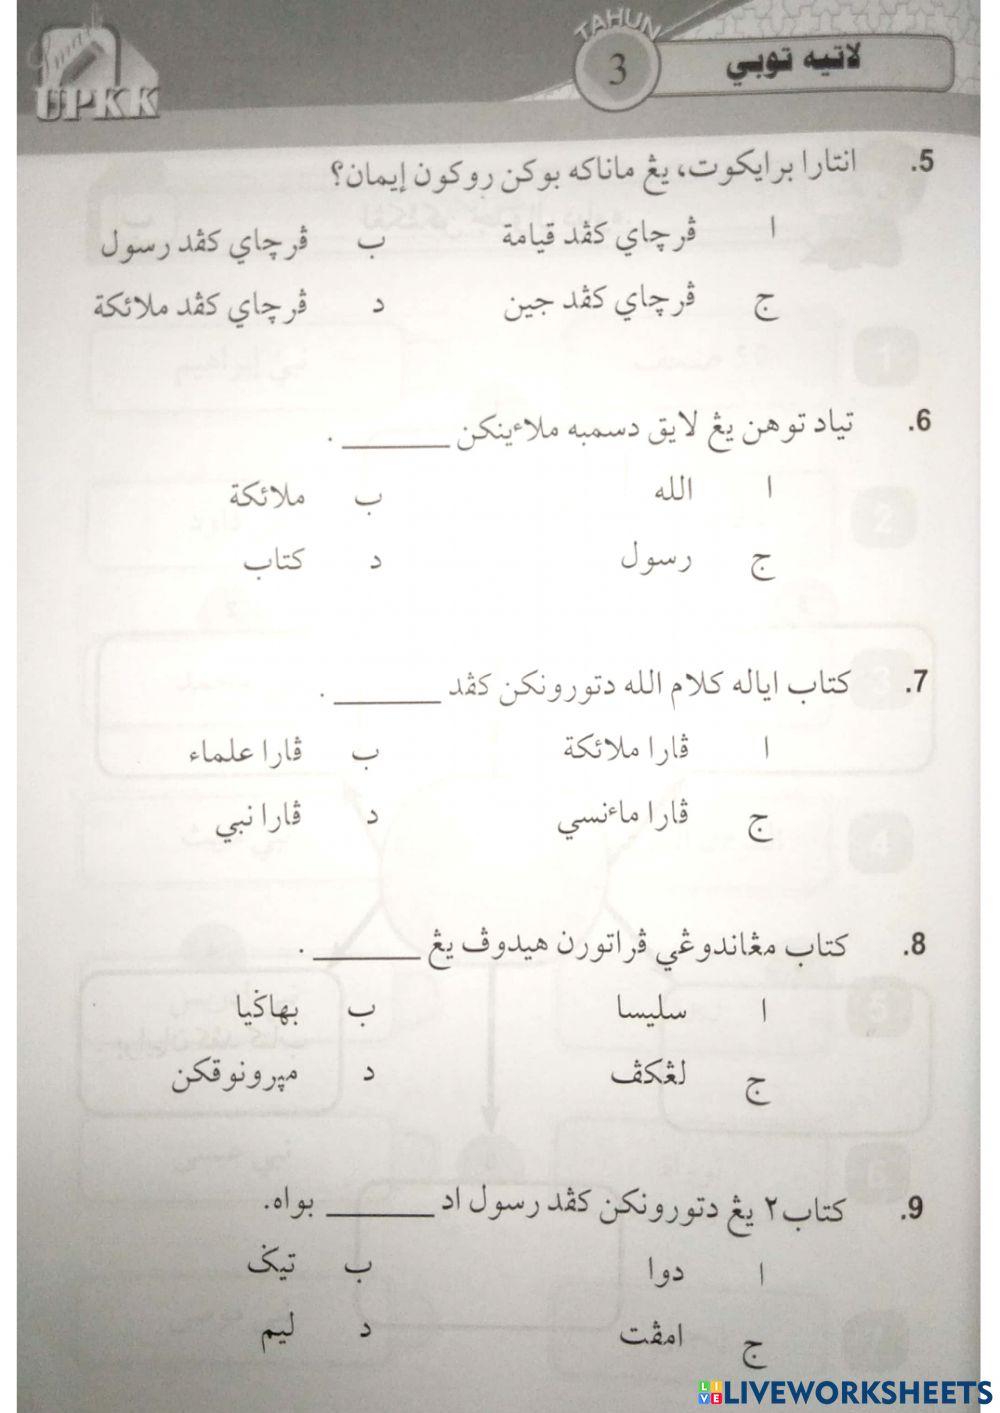 Smart
UPKK
TAHUN
3
لاتيه توبي
5. انتارا برايكوت، يڠ ماناكه بوكن روكون إيمان؟
ا ڤرچاي كڤد قيامة ب ڤرچاي كڤد رسول
ج ڤرچاي كڤد جين د ڤرچاي كڤد ملائكة
6. تياد توهن يڠ لايق دسمبه ملاءينكن ________ .
ا الله ب ملائكة
ج رسول د كتاب
7. كتاب اياله كلام الله دتورونكن كڤد ________ .
ا ڤارا ملائكة ب ڤارا علماء
ج ڤارا مأنسي د ڤارا نبي
8. كتاب مڠاندوڠي ڤراتورن هيدوڤ يڠ ________ .
ا سليسا ب بهاݢيا
ج لڠكڤ د مڽرونوقكن
9. كتاب٢ يڠ دتورونكن كڤد رسول اد ________ بواه.
ا دوا ب تيݢ
ج امڤت د ليم
LIVEWORKSHEETS